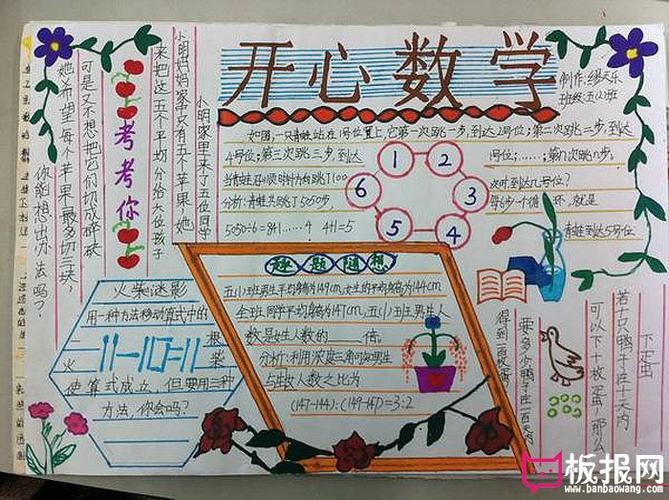 开心数学
制作:缪天乐
班级:五(2)班
如图,一只青蛙站在1号位置上,它第一次跳一步,到达2号位;第二次跳二步,到达
4号位;第三次跳三步,到达
1号位;……;第n次跳n步。
当青蛙沿顺时针方向跳了100
次时,到达几号位?
分析:青蛙共跳了5050步,
每6步一个循环,就是
5050÷6=841……4 4+1=5
青蛙到达5号位
1
2
3
4
5
6
小明家里来了五位同学
小明妈妈家中只有五个苹果,她
来把这五个平均分给六位孩子
可是又不想把它们切成碎碎
她希望每个苹果最多切三块,
你能想出办法吗?
考考你
火柴谜影
用一种方法移动算式中的
一根火柴
11-10=11
使算式成立,但要用三种
方法,你会吗?
趣题随想
五(1)班男生平均身高为149cm,女生的平均身高为144cm
全班同学平均身高为147cm,五(1)班男生人
数是女生人数的 倍。
分析:利用浓度三角可知男生
与女生人数之比为
(147-144):(149-147)=3:2
下蛋
若十只鸭子在十天内
可以下十枚蛋,那么
要多少鸭子在一百天内
得到一百枚蛋?
板报网
www.banbaowang.com